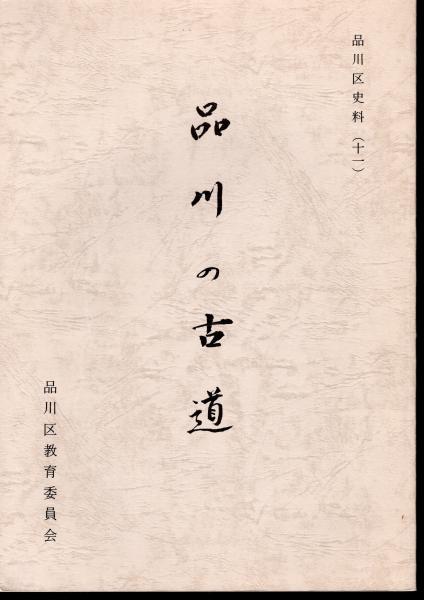 品川区史料（十一）
品川の古道
品川区教育委員会